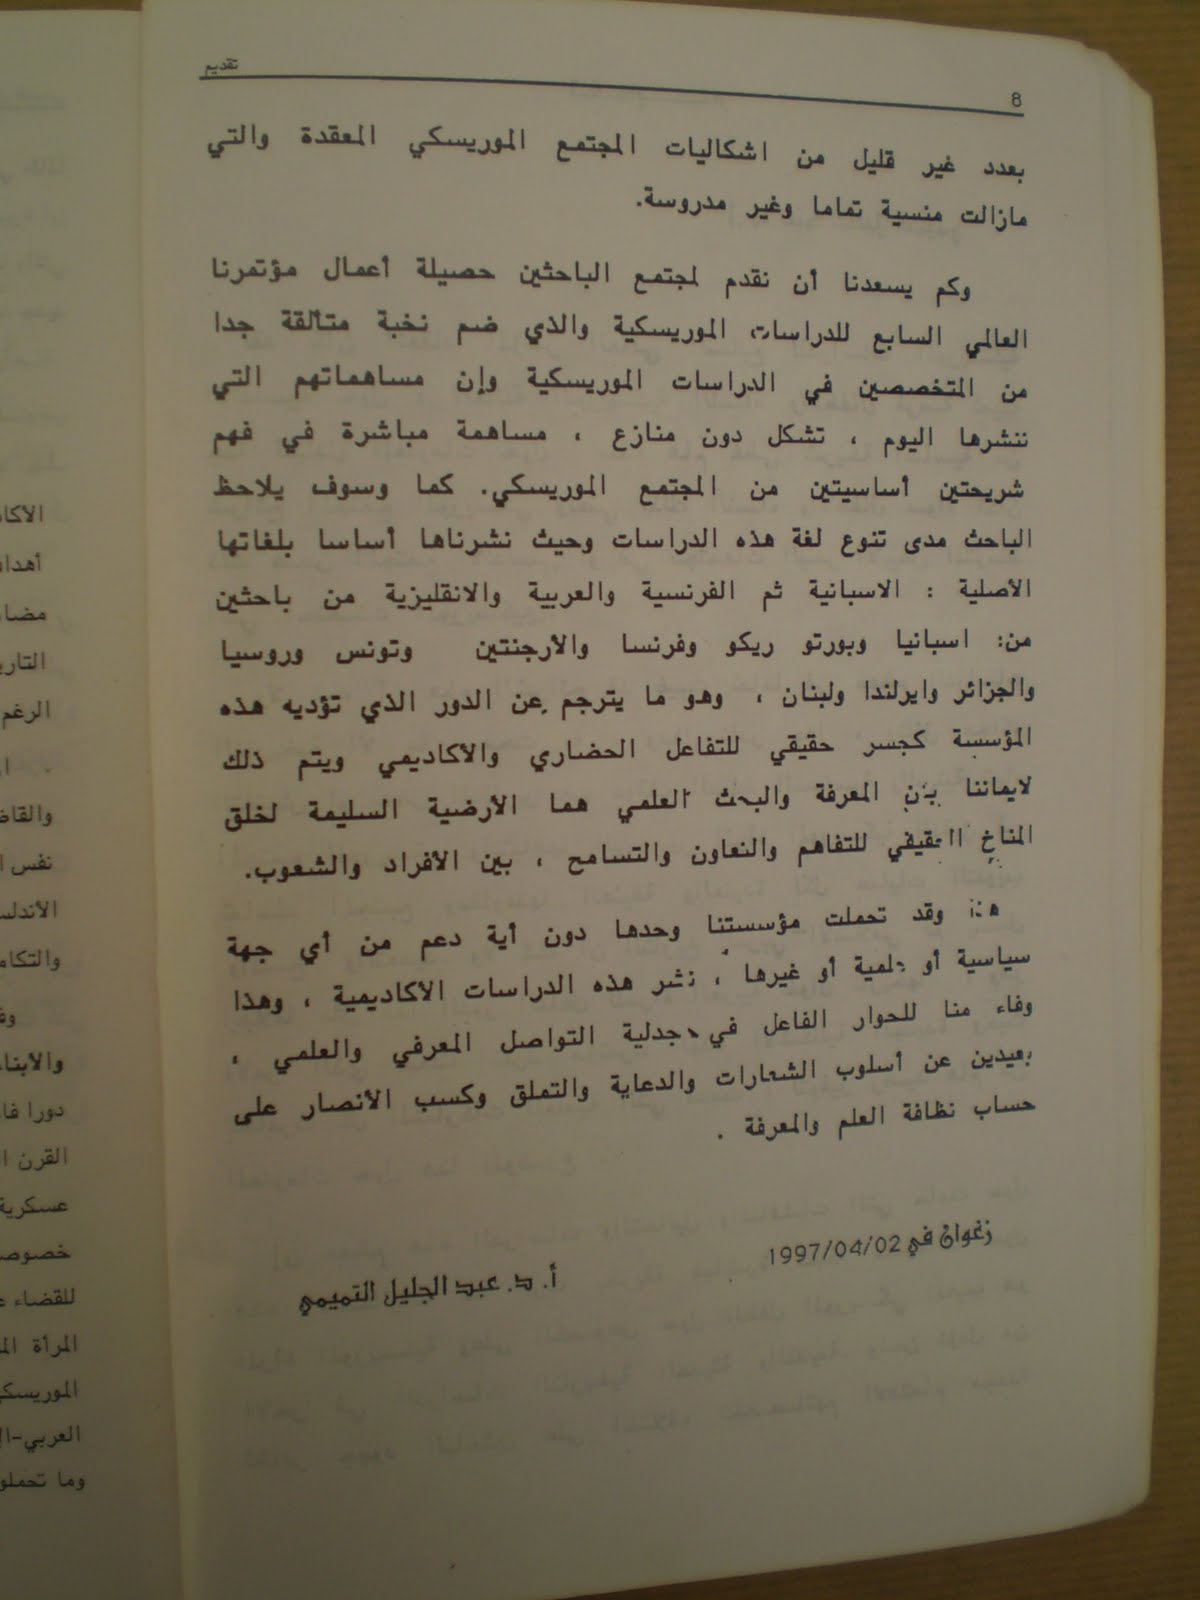 تقديم
8
بعدد غير قليل من اشكاليات المجتمع الموريسكي المعقدة والتي
مازالت منسية تماما وغير مدروسة.
وكم يسعدنا أن نقدم لمجتمع الباحثين حصيلة أعمال مؤتمرنا
العالمي السابع للدراسات الموريسكية والذي ضم نخبة متألقة جدا
من المتخصصين في الدراسات الموريسكية وإن مساهماتهم التي
ننشرها اليوم ، تشكل دون منازع ، مساهمة مباشرة في فهم
شريحتين أساسيتين من المجتمع الموريسكي. كما وسوف يلاحظ
الباحث مدى تنوع لغة هذه الدراسات وحيث نشرناها أساسا بلغاتها
الأصلية : الاسبانية ثم الفرنسية والعربية والانقليزية من باحثين
من: اسبانيا وبورتو ريكو وفرنسا والأرجنتين وتونس وروسيا
والجزائر وايرلندا ولبنان ، وهو ما يترجم عن الدور الذي تؤديه هذه
المؤسسة كجسر حقيقي للتفاعل الحضاري والأكاديمي ويتم ذلك
لايماننا بأن المعرفة والبحث العلمي هما الأرضية السليمة لخلق
المناخ الحقيقي للتفاهم والتعاون والتسامح ، بين الأفراد والشعوب.
هذا وقد تحملت مؤسستنا وحدها دون أية دعم من أي جهة
سياسية أو علمية أو غيرها ، نشر هذه الدراسات الأكاديمية ، وهذا
وفاء منا للحوار الفاعل في جدلية التواصل المعرفي والعلمي ،
بعيدين عن أسلوب الشعارات والدعاية والتملق وكسب الأنصار على
حساب نظافة العلم والمعرفة .
زغوان في 1997/04/02
أ. د. عبد الجليل التميمي
أهدا
مضا
التاري
الرغم
والقاض
نفس ا
الأندلس
والتكام
وف
والأبناء
دورا فا
القرن ا
عسكرية
خصوص
للقضاء ع
المرأة الم
الموريسكي
العربي-الإ
وما تحملو